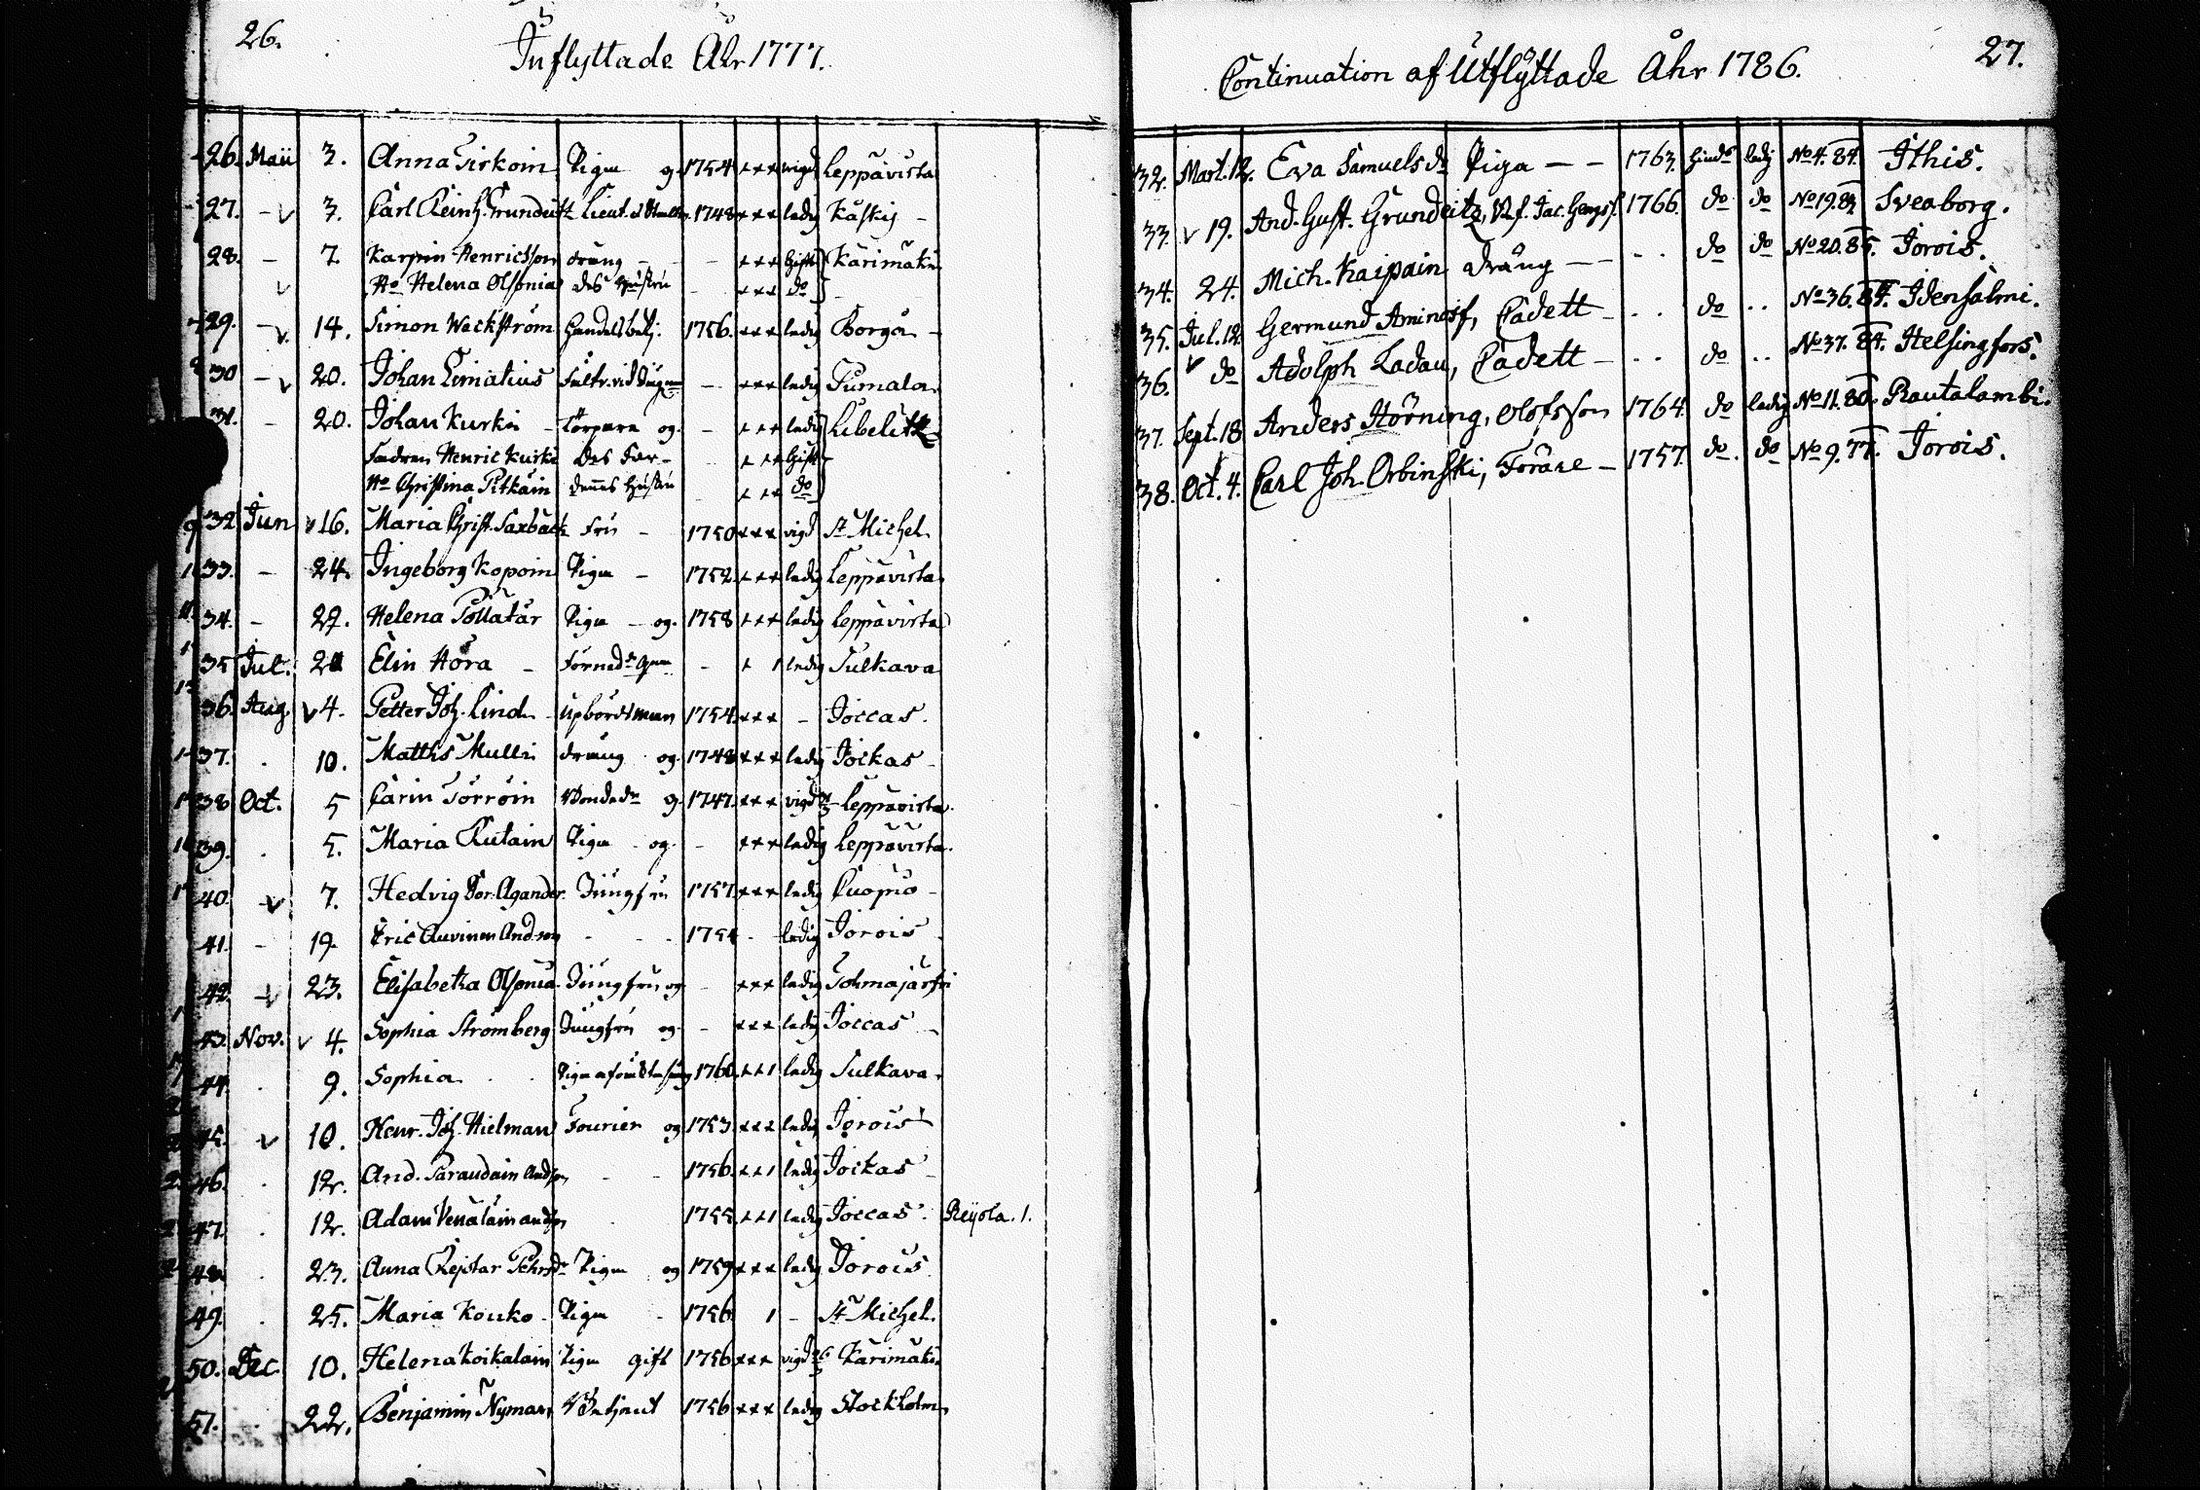 26.
Inflyttade Åhr 1777.
26. Maii 3. Anna Pig og. 1754 *** vigd Leppävirta
27. - v 3. Carl Reinh. Lieut. 1748 *** ledig
28. - 7. Karpin Henricsson dräng - - *** Gift Kärimäki
v Ho Helena Olsonia des Hustru - *** do
29. - v 14. Simon Weckström Handelsbetj. 1756. *** ledig Borgå -
30 - v 20. Johan Limatius - *** ledig Sumala
31. - 20. Johan Kurki - og. - *** ledig Libelits
Fadren Henric Kurki des Far - - *** Gift
Ho Christina Pitkäin dennes Hustru - *** do
32 Jun v 16. Maria Christ. Saxbäck Fru - 1750 *** vigd St Michel
33. - 24. Ingeborg Kopoin Piga - 1752 *** ledig Leppävirta
34. - 27. Helena Pöllätär Piga - og. 1758 *** ledig Leppävirta
35 Jul. Elin Höra - - ledig Sulkava
36. Aug. v 4. Petter Joh. Lind - Upbördsman 1754 *** - Joccas.
37. . 10. Matths Mulli dräng og. 1748 *** ledig Jockas -
38 Oct. 5 Carin Törröin Bondedr og. 1747. *** vigd Leppävirta.
39. . 5. Maria Rutain Piga - og. - *** ledig Leppävirta.
40. v 7. Hedvig Dor. Agander Jungfru 1757. *** ledig Cuopio -
41. - 19. Eric Auvinen And.son - - 1754 - ledig Jorois
42. v 23. Elisabetha Olsonia Jungfru og - *** ledig Tohmajärfvi
43. Nov. v 4. Sophia Strömberg Jungfru og. - *** ledig Joccas -
44. . 9. Sophia . . Piga 1760. **1 ledig Sulkava.
45. v 10. Henr. Joh. Hielman Fourier og 1753 *** ledig Jorois
46. . 12. And. Paraudain Andson - - 1756. **1 ledig Jockas -
47. . 12. Adam Venäläin andson . 1755. **1 ledig Joccas. Reijola. 1.
48. . 23. Anna Rejotar Pehrsdr Piga og 1759 *** ledig Jorois
49. . 25. Maria Kouko - Piga - 1756 1 - St Michel.
50. Dec. 10. Helena Koikalain Piga gift 1756 *** vigd Kärimäki
51. . 22. Benjamin Nyman Betjent 1756 *** ledig Stockholm
27.
Continuation af Utflyttade Åhr 1786.
32. Mart. 12. Eva Samuels dr Piga - - 1763. ledig No 4. 84. Ithis.
33. v 19. And. Gust. Grundeitz, 1766. do do No 19. 83. Sveaborg.
34. 24. Mich. Kaipain dräng - - . . do do No 20. 85. Jorois.
35. Jul. 12. Germund Aminoff, Cadett - . . do . . No 36. 84. Idensalmi.
36. v do Adolph Ladau, Cadett - . . do . . No 37. 84. Helsingfors.
37. Sept. 18 Anders Hörning, Olofsson 1764. do ledig No 11. 80. Rautalambi.
38. Oct. 4. Carl Joh. Orbinski, Förare - 1757. do do No 9. 77. Jorois.